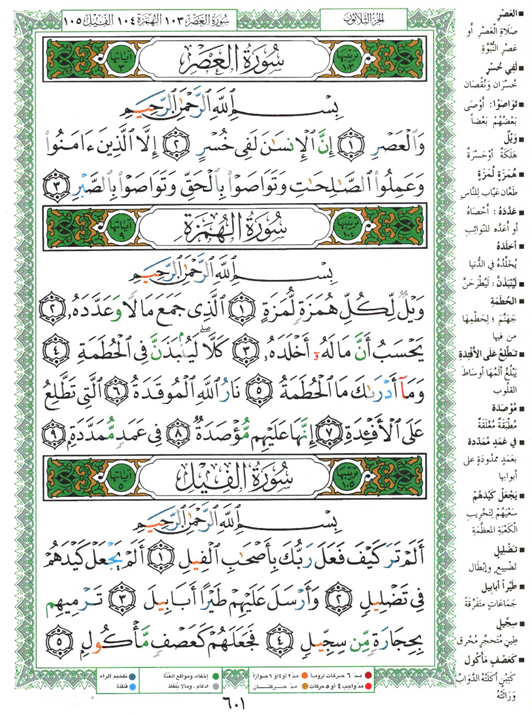 سُورَةُ العَصْرِ ١٠٣ الهُمَزَة ١٠٤ الفِيل ١٠٥
الجُزءُ الثَّلاثُونَ
سُورَةُ العَصْرِ
بِسْمِ ٱللَّهِ ٱلرَّحْمَٰنِ ٱلرَّحِيمِ
وَٱلْعَصْرِ ١ إِنَّ ٱلْإِنسَٰنَ لَفِى خُسْرٍ ٢ إِلَّا ٱلَّذِينَ ءَامَنُوا۟
وَعَمِلُوا۟ ٱلصَّٰلِحَٰتِ وَتَوَاصَوْا۟ بِٱلْحَقِّ وَتَوَاصَوْا۟ بِٱلصَّبْرِ ٣
سُورَةُ الهُمَزَةِ
بِسْمِ ٱللَّهِ ٱلرَّحْمَٰنِ ٱلرَّحِيمِ
وَيْلٌ لِّكُلِّ هُمَزَةٍ لُّمَزَةٍ ١ ٱلَّذِى جَمَعَ مَالًا وَعَدَّدَهُۥ ٢
يَحْسَبُ أَنَّ مَالَهُۥٓ أَخْلَدَهُۥ ٣ كَلَّا ۖ لَيُنۢبَذَنَّ فِى ٱلْحُطَمَةِ ٤
وَمَآ أَدْرَىٰكَ مَا ٱلْحُطَمَةُ ٥ نَارُ ٱللَّهِ ٱلْمُوقَدَةُ ٦ ٱلَّتِى تَطَّلِعُ
عَلَى ٱلْأَفْـِٔدَةِ ٧ إِنَّهَا عَلَيْهِم مُّؤْصَدَةٌ ٨ فِى عَمَدٍ مُّمَدَّدَةٍۭ ٩
سُورَةُ الفِيلِ
بِسْمِ ٱللَّهِ ٱلرَّحْمَٰنِ ٱلرَّحِيمِ
أَلَمْ تَرَ كَيْفَ فَعَلَ رَبُّكَ بِأَصْحَٰبِ ٱلْفِيلِ ١ أَلَمْ يَجْعَلْ كَيْدَهُمْ
فِى تَضْلِيلٍ ٢ وَأَرْسَلَ عَلَيْهِمْ طَيْرًا أَبَابِيلَ ٣ تَرْمِيهِم
بِحِجَارَةٍ مِّن سِجِّيلٍ ٤ فَجَعَلَهُمْ كَعَصْفٍ مَّأْكُولٍۭ ٥
■ العَصْرِ
صَلَاةِ العَصْرِ أو
عَصْرِ النُّبُوَّةِ
■ لَفِي خُسْرٍ
خُسْرَانٍ وَنُقْصَانٍ
■ تَوَاصَوْا : أَوْصَى
بَعْضُهُمْ بَعْضاً
■ وَيْلٌ
هَلَكَةٌ أَوْ حَسْرَةٌ
■ هُمَزَةٍ لُمَزَةٍ
طَعَّانٍ عَيَّابٍ لِلنَّاسِ
■ عَدَّدَهُ : أَحْصَاهُ
أو أعَدَّه للنّوائِبِ
■ أَخْلَدَهُ
يُخَلِّدُهُ فِي الدُّنيا
■ لَيُنْبَذَنَّ : لَيُطْرَحَنَّ
■ الحُطَمَةِ
جَهَنَّمَ ؛ لِحَطْمِهَا
مَن فيها
■ تَطَّلِعُ عَلَى الأَفْئِدَةِ
يَبْلُغُ أَلَمُهَا أوساطَ
القُلُوبِ
■ مُؤْصَدَةٌ
مُطْبَقَةٌ مُغْلَقَةٌ
■ فِي عَمَدٍ مُمَدَّدَةٍ
بِعَمَدٍ ممدودَةٍ على
أبوابها
■ يَجْعَلْ كَيْدَهُمْ
سَعْيَهُمْ لِتَخْرِيبِ
الكَعْبَةِ المعظَّمَةِ
■ تَضْلِيلٍ
تَضْيِيعٍ وإبْطَالٍ
■ طَيْراً أَبَابِيلَ
جَمَاعَاتٍ مُتَفَرِّقَةً
■ سِجِّيلٍ
طِينٍ مُتَحَجِّرٍ مُحْرَقٍ
■ كَعَصْفٍ مَأْكُولٍ
كَتِبْنٍ أَكَلَتْهُ الدَّوَابُّ
وَرَاثَتْهُ
مدّ ٦ حركات لزوماً
مدّ ٢ أو ٤ أو ٦ جوازاً
إخفاء، ومواقع الغُنَّة
تفخيم الراء
مدّ واجب ٤ أو ٥ حركات
مدّ حركتان
ادغام، وما لا يُلفَظ
قلقلة
٦٠١